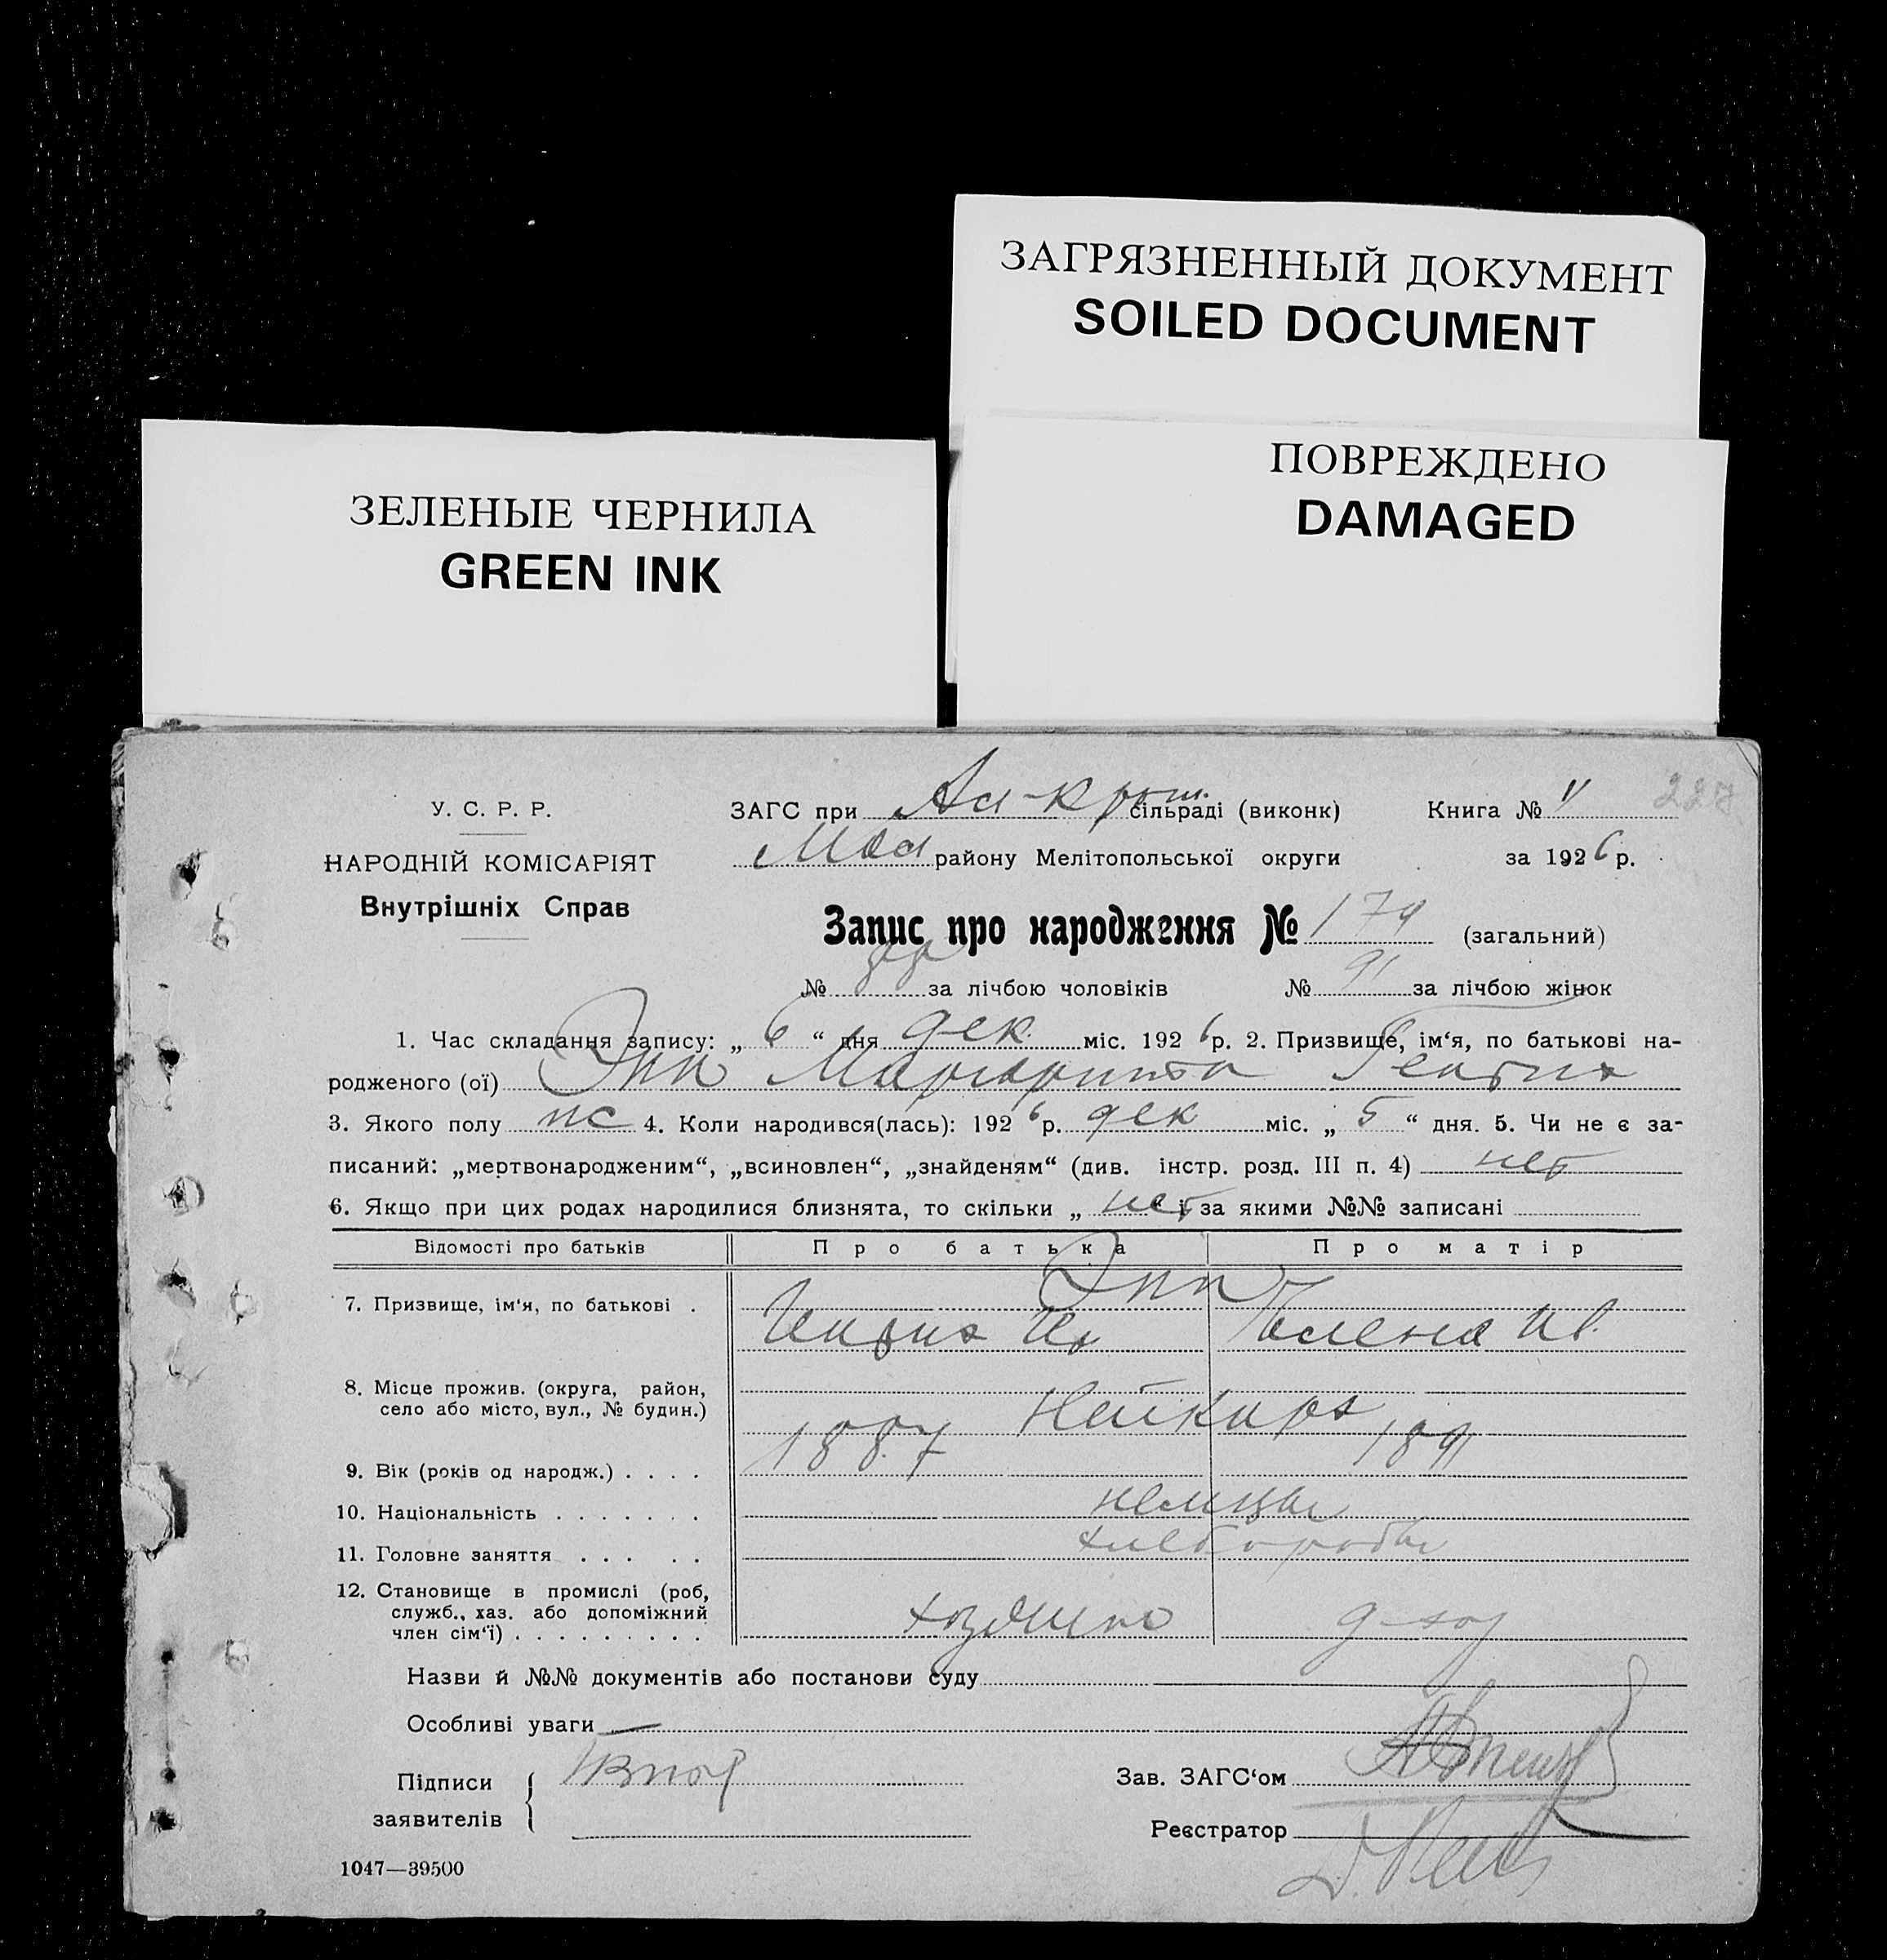 ЗАГРЯЗНЕННЫЙ ДОКУМЕНТ
SOILED DOCUMENT
ПОВРЕЖДЕНО
DAMAGED
ЗЕЛЕНЫЕ ЧЕРНИЛА
GREEN INK
У. С. Р. Р.
НАРОДНІЙ КОМІСАРІЯТ
Внутрішніх Справ
ЗАГС при сільраді (виконк) Книга № 11 227
району Мелітопольської округи за 1926 р.
Запис про народження № 179 (загальний)
№ за лічбою чоловіків № 91 за лічбою жінок
1. Час складання запису: „ 6 “ дня дек. міс. 1926 р. 2. Призвище, ім‘я, по батькові на-
родженого (ої) Энн Маргарита
3. Якого полу 4. Коли народився(лась): 1926 р. дек міс. „ 5 “ дня. 5. Чи не є за-
писаний: „мертвонародженим“, „всиновлен“, „знайденям“ (див. інстр. розд. III п. 4) нет
6. Якщо при цих родах народилися близнята, то скільки „ нет “ і за якими №№ записані
Відомості про батьків Про батька Про матір
7. Призвище, ім‘я, по батькові . Энн
Елена Ив.
8. Місце прожив. (округа, район,
село або місто, вул., № будин.) Нейкирх
9. Вік (років од народж.) . . . . 1887 1891
10. Національність . . . . . . . немцы
11. Головне заняття . . . . . хлеборобы
12. Становище в промислі (роб,
служб., хаз. або допоміжний
член сім‘ї) . . . . . . . . .
Назви й №№ документів або постанови суду
Особливі уваги —
Підписи
заявителів
Зав. ЗАГС‘ом
Реєстратор
1047—39500